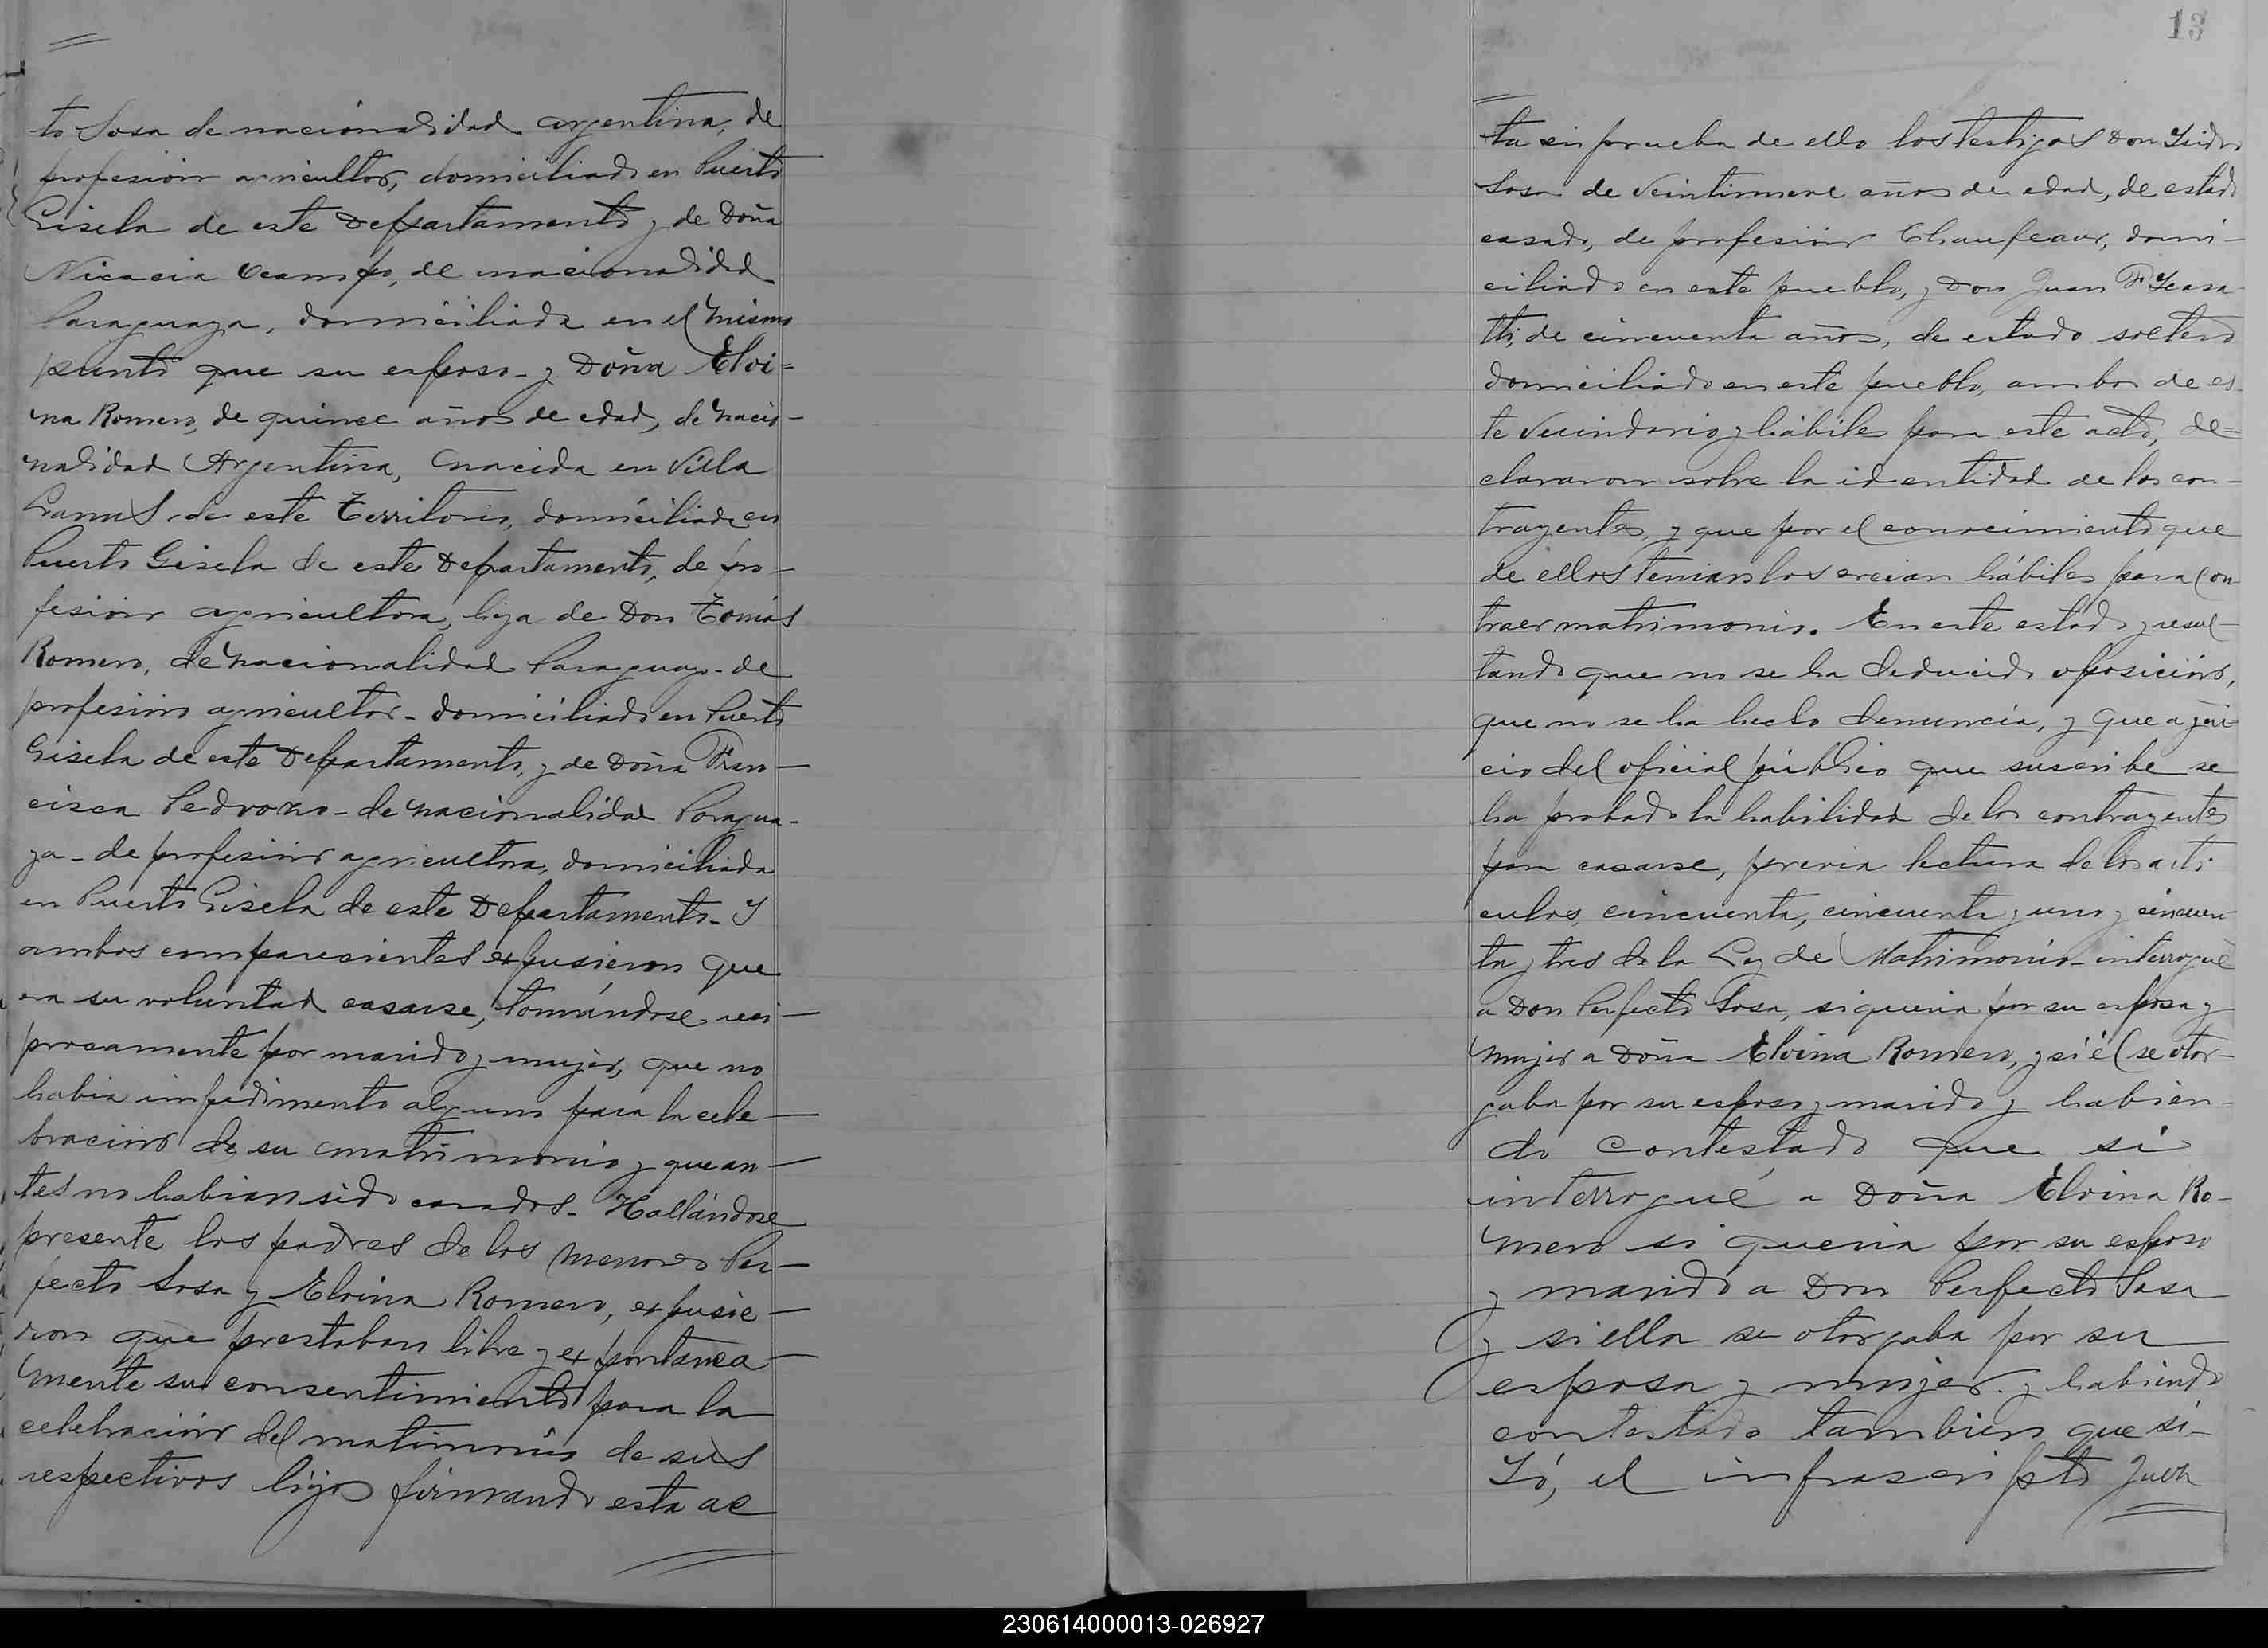 to Sosa de nacionalidad argentina, de
profesion agricultor, domiciliado en Puerto
Gisela de este Departamento y de Doña
Nicacia Ocampo, de nacionalidad
Paraguaya, domiciliada en el mismo
punto que su esposo - y Doña Elvi=
na Romero, de quince años de edad, de nacio-
nalidad Argentina, nacida en Villa
de este Territorio, domiciliada en
Puerto Gisela de este Departamento, de pro-
fesión agricultora, hija de Don Tomás
Romero, de nacionalidad Paraguayo - de
profesion agricultor - domiciliado en Puerto
Gisela de este Departamento, y de Doña Fran-
cisca Pedrozo - de nacionalidad Paragua-
ya - de profesion agricultora, domiciliada
en Puerto Gisela de este Departamento - Y
ambos comparecientes expusieron que
era su voluntad casarse, tomándose reci-
procamente por marido y mujer, que no
habia impedimento alguno para la cele-
bracion de su matrimonio y que an-
tes no habian sido casados - Hallándose
presente los padres de los menores Per-
fecto Sosa y Elvina Romero, expusie-
ron que prestaban libre y expontanea-
mente su consentimiento para la
celebración del matrimonio de sus
respectivos hijos firmando esta ac
13
ta en prueba de ello los testigos Don Isidro
Sosa de veintinueve años de edad, de estado
casado, de profesión Chaufeaur, domi-
ciliado en este pueblo, y Don Juan F.
de cincuenta años, de estado soltero
domiciliado en este pueblo, ambos de es-
te vecindario y hábiles para este acto, de-
clararon sobre la identidad de los con-
trayentes, y que por el conocimiento que
de ellos tenian los creian hábiles para con
traer matrimonio. En este estado y resul-
tando que no se ha deducido oposición,
que no se ha hecho denuncia, y que a jui-
cio del oficial público que suscribe se
ha probado la habilidad de los contrayentes
para casarse, previa lectura de los arti
culos, cincuenta, cincuenta y uno y cincuen-
ta y tres de la Ley de Matrimonio - interrogué
a Don Perfecto Sosa, si queria por su esposa y
mujer a Doña Elvina Romero, y si él se otor-
gaba por su esposo y marido y habien-
do contestado que si
interrogué a Doña Elvina Ro-
mero si queria por su esposo
y marido a Don Perfecto Sosa
y si ella se otorgaba por su
esposa y mujer. y habiendo
contestado tambien que si -
Yó, el infrascripto Juez
230614000013-026927